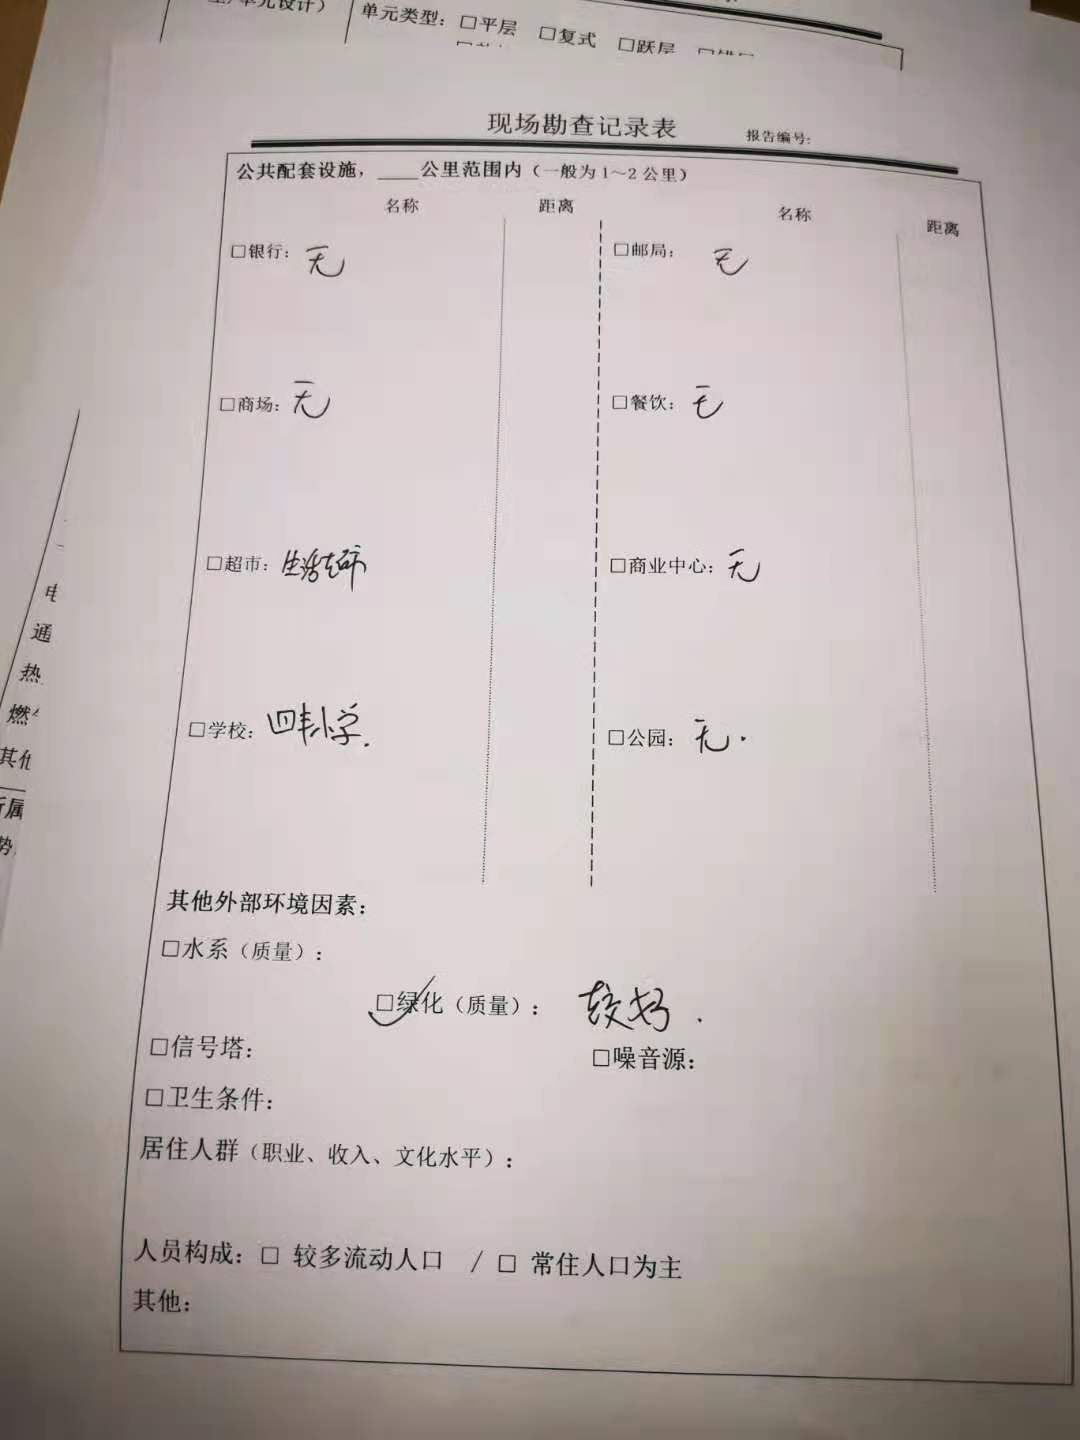 单元设计）
单元类型：□平层 □复式 □跃层
现场勘查记录表 报告编号:
公共配套设施，____公里范围内（一般为1～2公里）
名称 距离 名称 距离
□银行： 无 □邮局： 无
□商场： 无 □餐饮： 无
□超市： 生活超市 □商业中心： 无
□学校： 四丰小学. □公园： 无.
其他外部环境因素：
□水系（质量）：
□绿化（质量）： 较好.
□信号塔： □噪音源：
□卫生条件：
居住人群（职业、收入、文化水平）：
人员构成：□ 较多流动人口 / □ 常住人口为主
其他：
通
热
燃
其他
所属
势